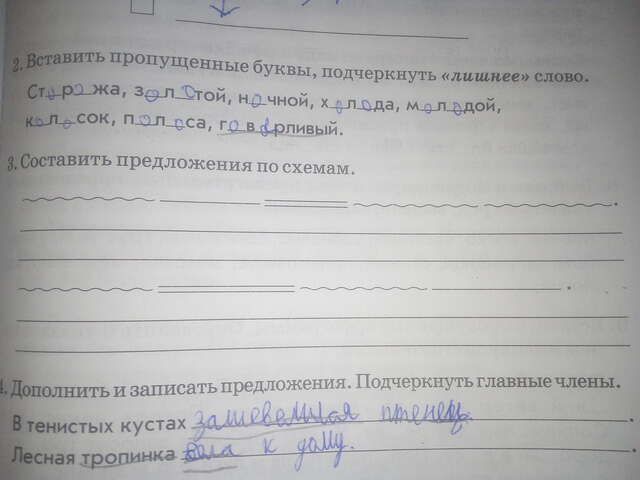 2. Вставить пропущенные буквы, подчеркнуть «лишнее» слово.
Сторожа, золотой, ночной, холода, молодой,
колосок, полоса, говорливый.
3. Составить предложения по схемам.
4. Дополнить и записать предложения. Подчеркнуть главные члены.
В тенистых кустах зашевелился птенец.
Лесная тропинка вела к дому.